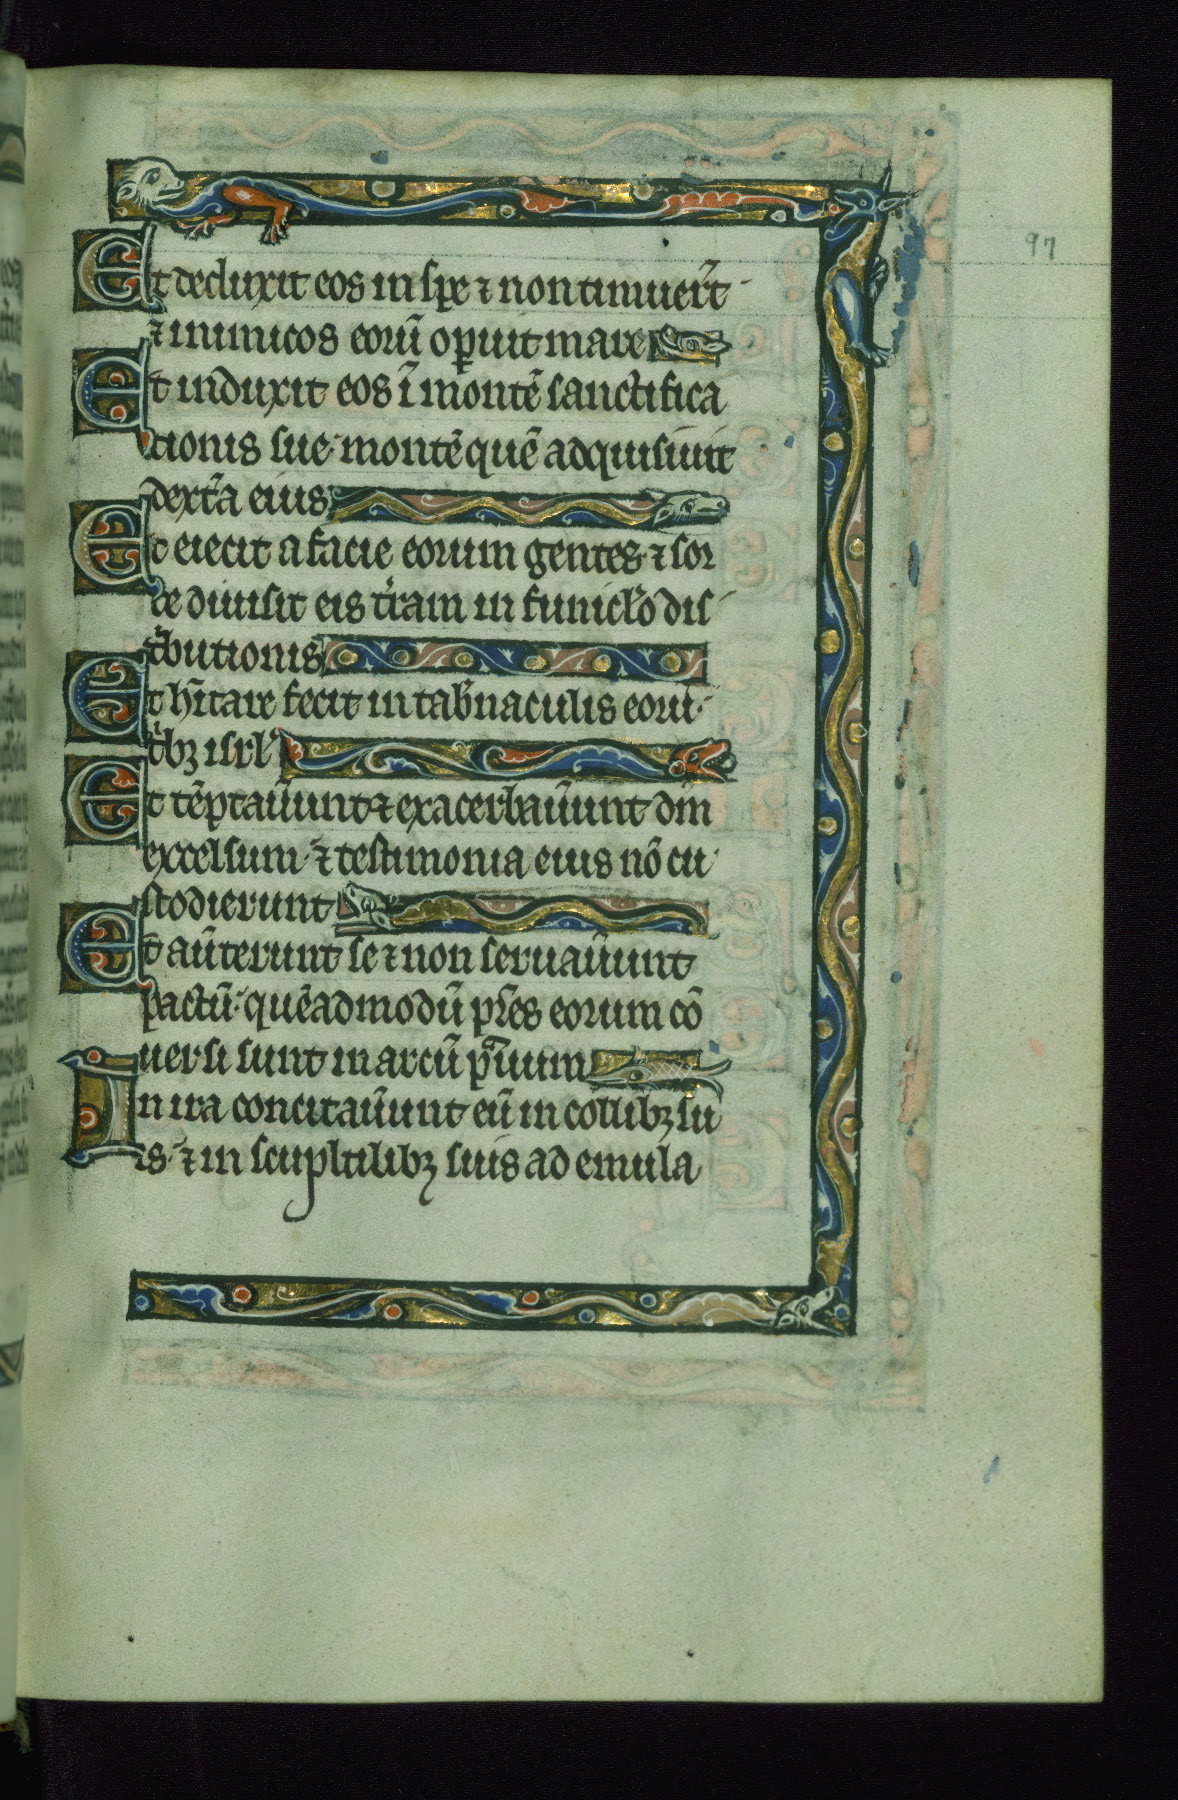 97
Et deduxit eos in spe ⁊ non timuer̄t
⁊ inimicos eorū op̲uit mare
Et induxit eos ī montē sanctifica
tionis sue· montē quē adquisiuit
dext̾a eius
Et eiecit a facie eorum gentes· ⁊ sor
te diuisit eis t̾ram in funicl̾o dis
t̾butionis
Et h̄itare fecit in tab̾naculis eorū·
t̾bꝫ isrl̾
Et tēptau̾unt ⁊ exacerbau̾unt dm̄
excelsum· ⁊ testimonia eius nō cu
stodierunt
Et au̾terunt se ⁊ non seruau̾unt
pactū· quēadmodū pr̄es eorum cō
uersi sunt in arcū prauum
In ira concitau̾unt eū in collibꝫ su
is· ⁊ in scupltilibꝫ suis ad emula